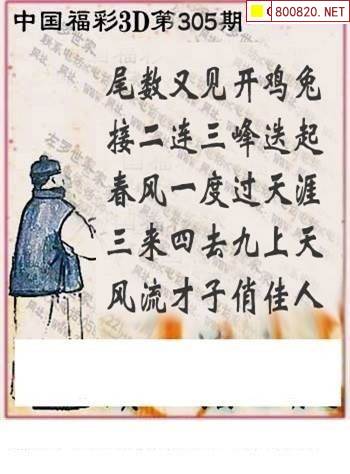 中国福彩3D第305期
800820.NET
尾数又见开鸡兔
接二连三峰迭起
春风一度过天涯
三来四去九上天
风流才子俏佳人